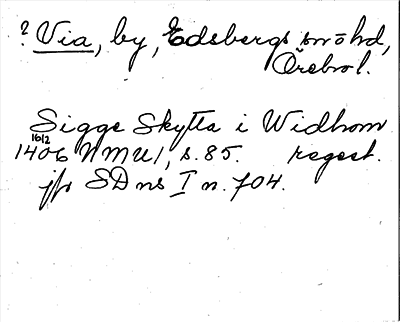 ? Via, by, Edsbergs sn o hd,
Örebro l.
Sigge Skytta i Widhom
16/2
1406 NMU 1, s. 85. regest.
jfr SD ns I n. 704.